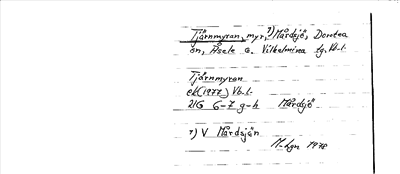 Tjärnmyran, myr, 1) Mårdsjö, Dorotea
sn, Åsele o. Vilhelmina tg. Vb.l.
Tjärnmyran
ek (1977) Vb.l.
21G 6-7 g-h Mårdsjö
1) V Mårdsjön
1978